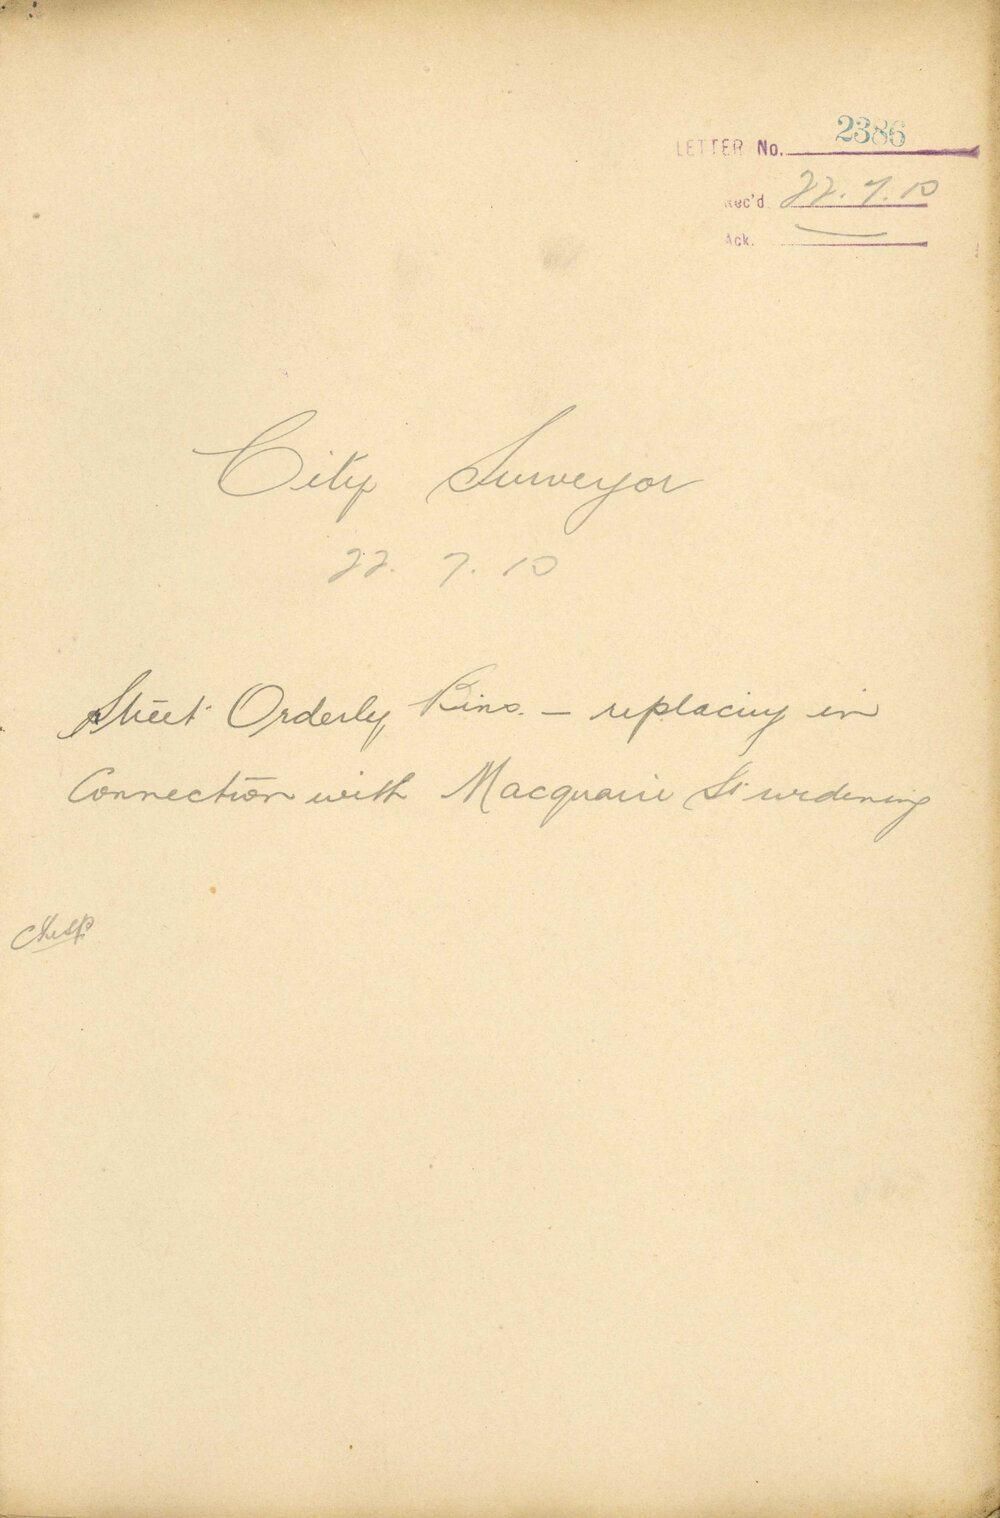 LETTER No. 2386
Rec'd 22.7.10
Ack.
City Surveyor
22. 7. 10
Street Orderly Bins. — replacing in
Connection with Macquarie St widening